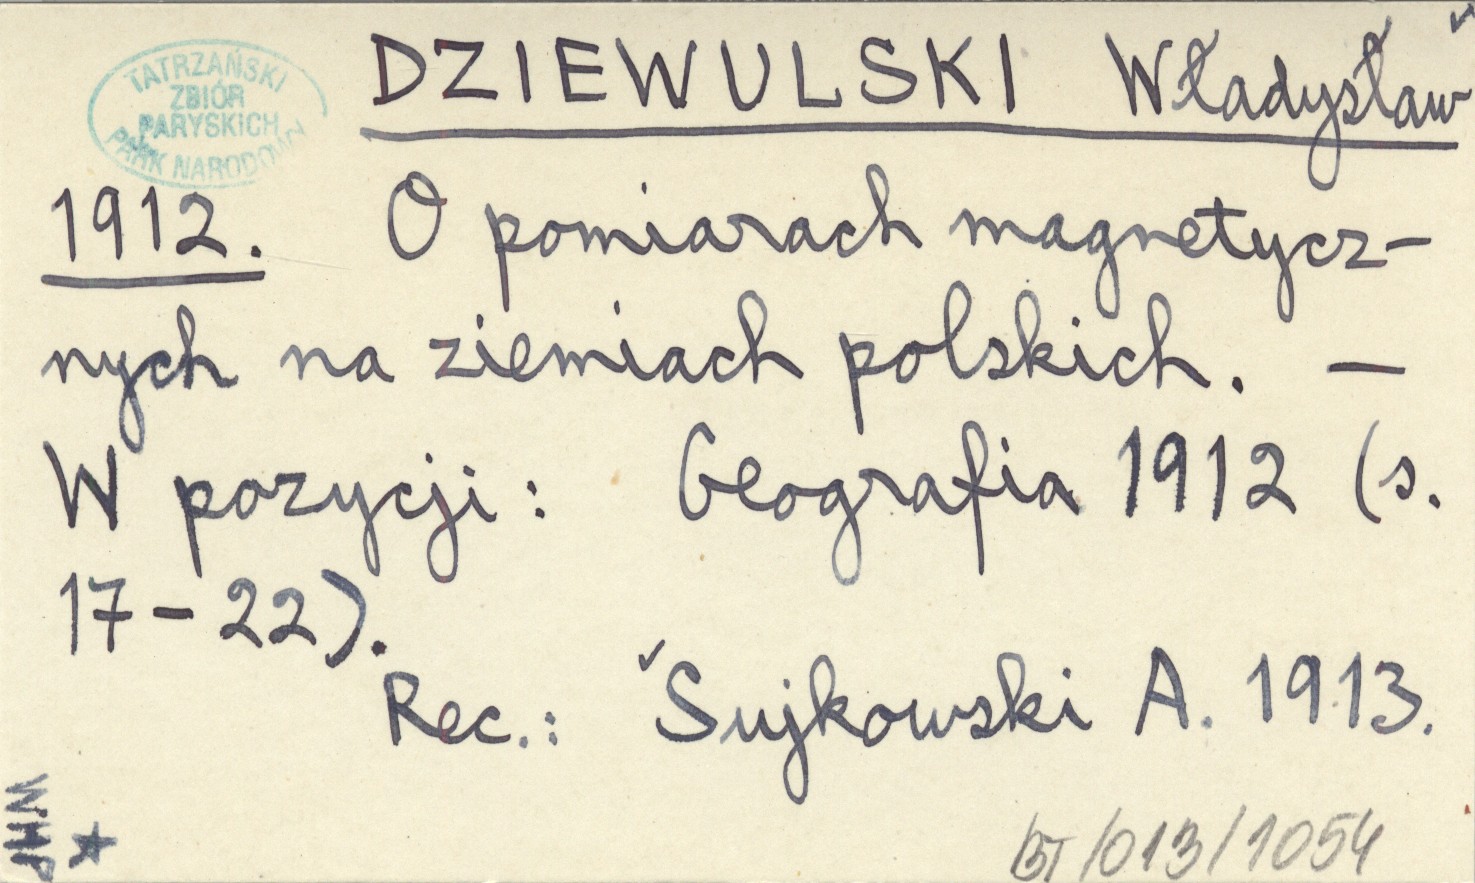 TATRZAŃSKI
ZBIÓR
PARYSKICH
PARK NARODOWY
DZIEWULSKI Władysław
1912. O pomiarach magnetycz-
nych na ziemiach polskich. —
W pozycji: Geografia 1912 (s.
17-22).
Rec.: Sujkowski A. 1913.
WHP
BT/013/1054